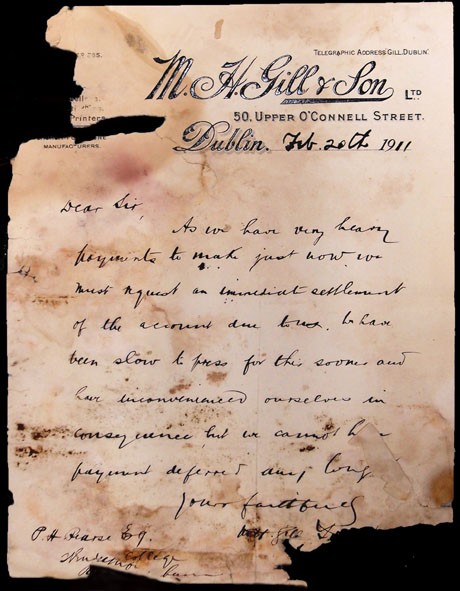 TELEGRAPHIC ADDRESS "GILL, DUBLIN."
M. H. Gill & Son LTD
50, UPPER O'CONNELL STREET.
Printers
MANUFACTURERS.
Dublin. Feb. 20th 1911
Dear Sir,
As we have very heavy
payments to make just now we
must request an immediate settlement
of the account due to us. We have
been slow to press for this sooner and
have inconvenienced ourselves in
consequence but we cannot
payment deferred any long
Yours faithfully
P. H. Pearse Esq.
M. H. Gill
College